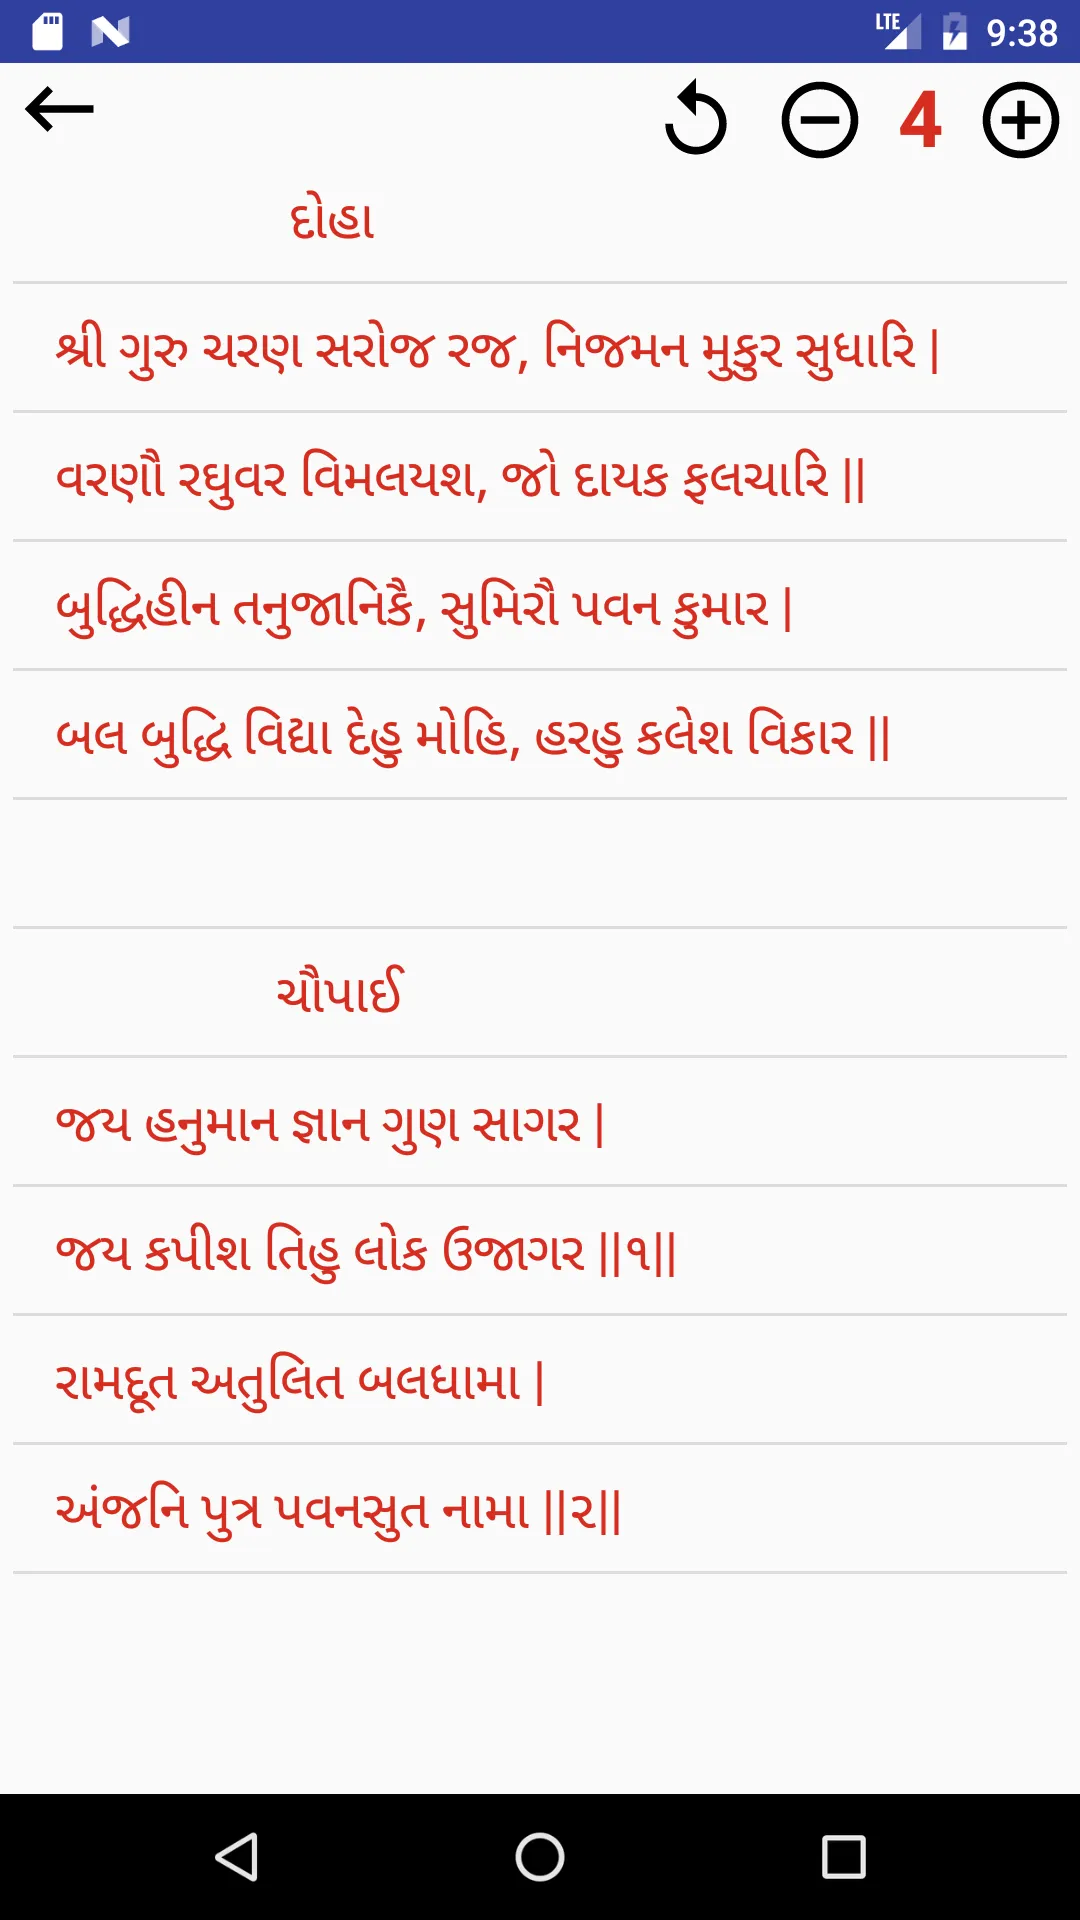 LTE 9:38
4
દોહા
શ્રી ગુરુ ચરણ સરોજ રજ, નિજમન મુકુર સુધારિ |
વરણૌ રઘુવર વિમલયશ, જો દાયક ફલચારિ ||
બુદ્ધિહીન તનુજાનિકૈ, સુમિરૌ પવન કુમાર |
બલ બુદ્ધિ વિદ્યા દેહુ મોહિ, હરહુ કલેશ વિકાર ||
ચૌપાઈ
જય હનુમાન જ્ઞાન ગુણ સાગર |
જય કપીશ તિહુ લોક ઉજાગર ||૧||
રામદૂત અતુલિત બલધામા |
અંજનિ પુત્ર પવનસુત નામા ||૨||